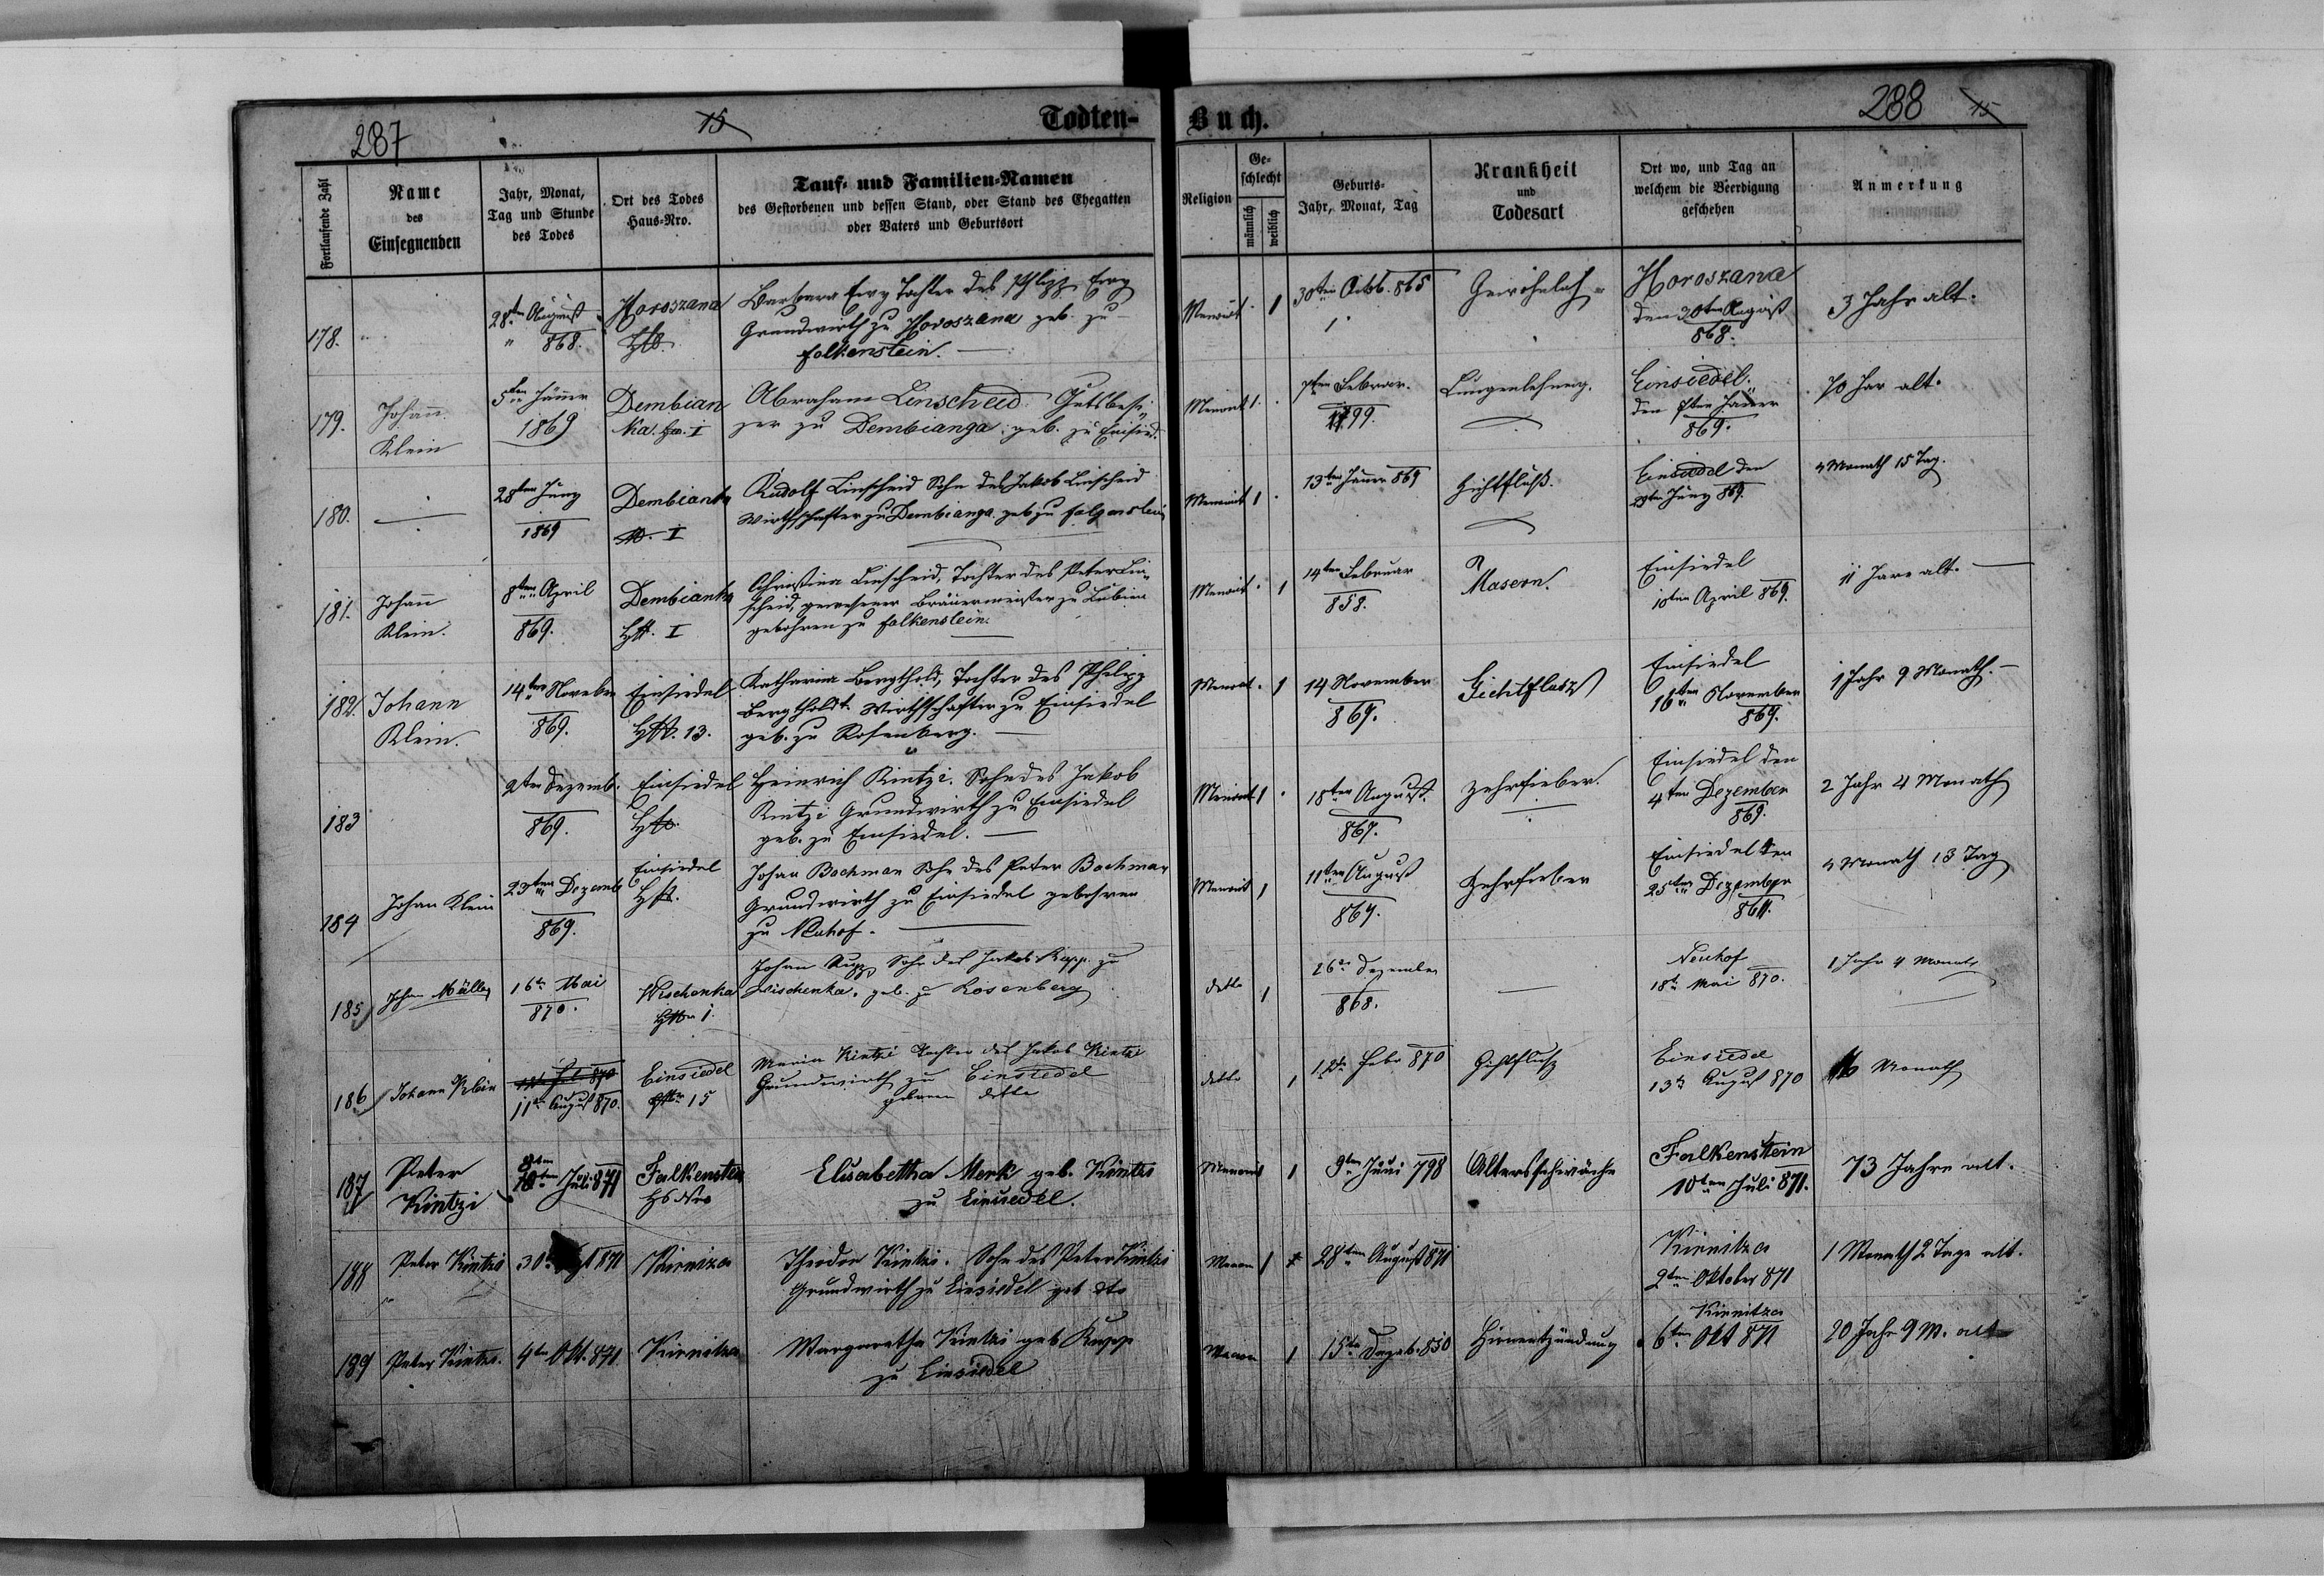 287
15
Todten-
Buch.
288
15
Fortlaufende Zahl
Name
des
Einsegnenden
Jahr, Monat,
Tag und Stunde
des Todes
Ort des Todes
Haus-Nro.
Tauf- und Familien-Namen
des Gestorbenen und dessen Stand, oder Stand des Ehegatten
oder Vaters und Geburtsort
Religion
Ge-
schlecht
männlich
weiblich
Geburts-
Jahr, Monat, Tag
Krankheit
und
Todesart
Ort wo, und Tag an
welchem die Beerdigung
geschehen
Anmerkung
178.
28ten August
868.
Horoszana
Barbara Ewy Tochter des Philipp Ewy
Grundwirth zu Horoszana geb. zu
Falkenstein.
1
30ten Octob. 865
Horoszana
den 30ten August
868.
3 Jahr alt.
179.
Johann
Klein
5ten Jäner
1869
Dembian
ka. I
Abraham Linscheid Gutsbesi
zer zu Dembianga geb. zu Einsied.
Menonit 1
7ten Februar.
1799.
Einsiedel.
den 7ten Jäner
869.
70 Jar alt.
180.
28ten Juny
1869
Dembianka
I
Rudolf Linscheid Sohn des Jakob Linscheid
Wirthschafter zu Dembianga geb zu Falgenstein
Menonit 1
13ten Jäner 869
Gichtfluß.
Einsiedel den
29ten Juny 869.
4 Monath 15 Tag.
181.
Johann
Klein.
8ten April
869.
Dembianka
I
Christina Linscheid, Tochter des Peter Lin
scheid, gewesener Bräuermeister zu Lubien
gebohren zu Falkenstein.
Menonit 1
14ten Februar
858.
Masern.
Einsiedel
10ten April 869.
11 Jare alt.
182.
Johann
Klein.
14ten Noveber
869.
Einsiedel
13.
Katharina Bergthold, Tochter des Philipp
Bergtholdt Wirthschafter zu Einsiedel
geb. zu Rosenberg.
Menonit 1
14 November
869.
Gichtflusz
Einsiedel
16ten November
869.
1 Jahr 9 Monath.
183
2ten Dezemb.
869.
Einsiedel
Heinrich Kintzi. Sohn des Jakob
Kintzi Grundwirth zu Einsiedel
geb. zu Einsiedel.
Menonit 1
18ten August.
867.
Zehrfieber.
Einsiedel den
4ten Dezember
869.
2 Jahr 4 Monath
184
Johan Klein
23ten Dezemb
869.
Einsiedel
Johan Bachman Sohn des Peter Bachman
Grundwirth zu Einsiedel gebohren
zu Neuhof.
Menonit 1
11ten August
869.
Zehrfieber
Einsiedel den
25ten Dezember
869.
4 Monath 13 Tag
185
Johan Müller
16ten Mai
870.
Wischenka
1.
Johan Rupp Sohn des Jakob Rupp zu
Wischenka, geb. zu Rosenberg
detto 1
26ten Dezember
868.
Neuhof
18ten Mai 870.
1 Jahr 4 Monat
186
Johann Klein
11ten August 870.
Einsiedel
15
Maria Kintzi Tochter des Jakob Kintzi
Grundwirth zu Einsiedel
geboren detto
detto 1
12ten Febr 870
Gichtflusz
Einsiedel
13ten August 870
6 Monath
187
Peter
Kintzi
8ten Juli 871
Falkenstein
Hs Nro
Elisabetha Merk geb. Kintzi
zu Einsiedel.
Menonit 1
9ten Juni 798
Altersschwäche
Falkenstein
10ten Juli 871.
73 Jahre alt.
188
Peter Kintzi
30 871
Kiernitza
Theodor Kintzi. Sohn des Peter Kintzi
Grundwirth zu Einsiedel geb dto
Menon 1
28ten August 871
Kiernitza
2ten Oktober 871
1 Monath 2 Tage alt.
189
Peter Kintzi.
4ten Okt. 871
Kiernitza
Margaretha Kintzi geb Rupp
zu Einsiedel
Menon 1
15ten Dezeb. 850
Hirnentzündung
Kiernitza
6ten Okt 871
20 Jahr 9 M. alt